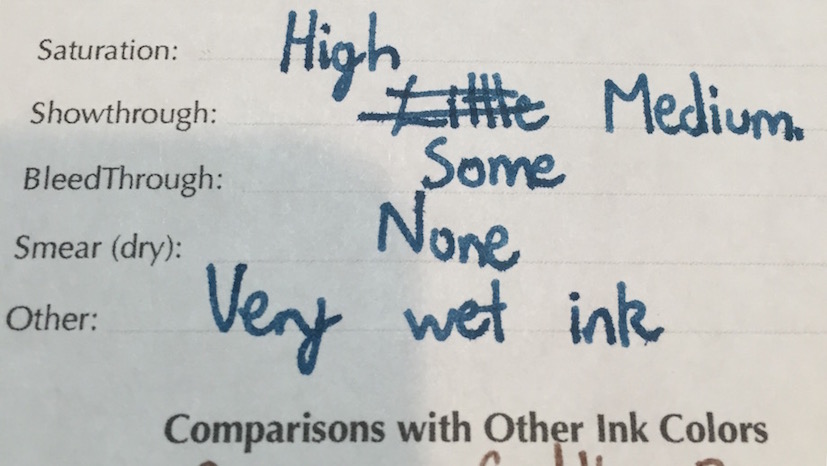 Saturation: High
Showthrough: Little Medium.
BleedThrough: Some
Smear (dry): None
Other: Very wet ink
Comparisons with Other Ink Colors